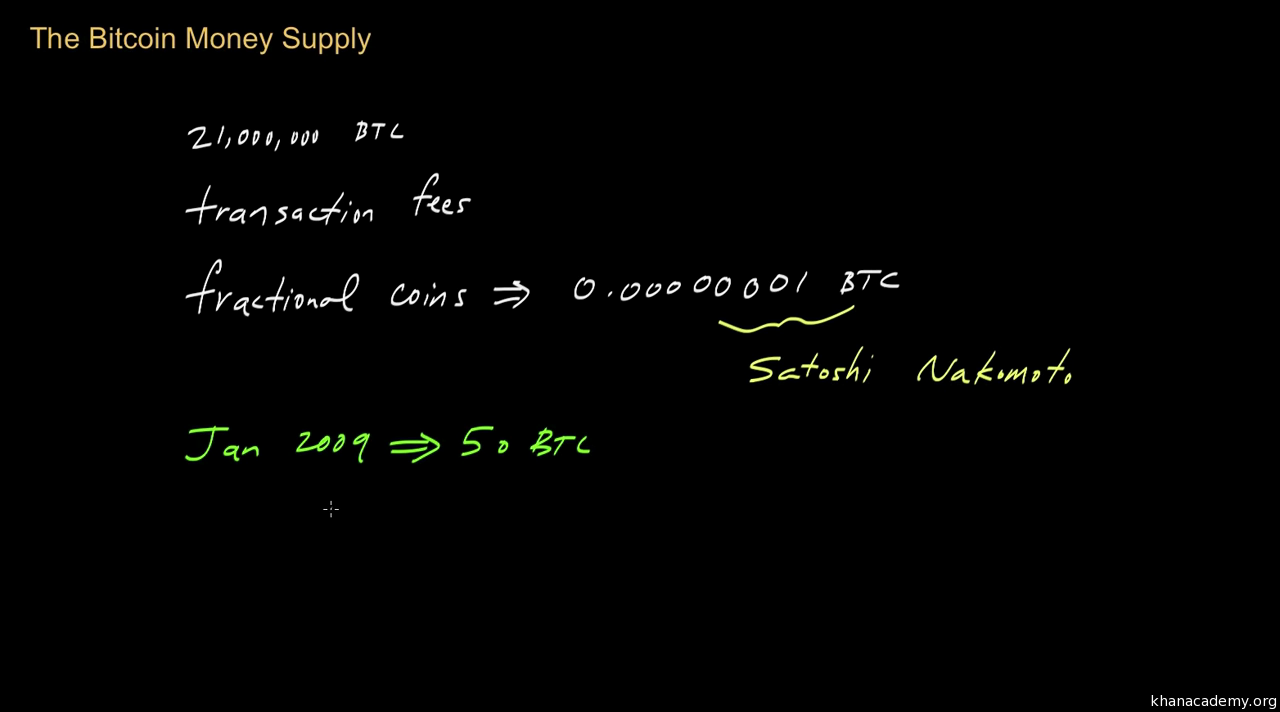 The Bitcoin Money Supply
21,000,000 BTC
transaction fees
fractional coins ⇒ 0.00000001 BTC
Satoshi Nakamoto
Jan 2009 ⇒ 50 BTC
khanacademy.org